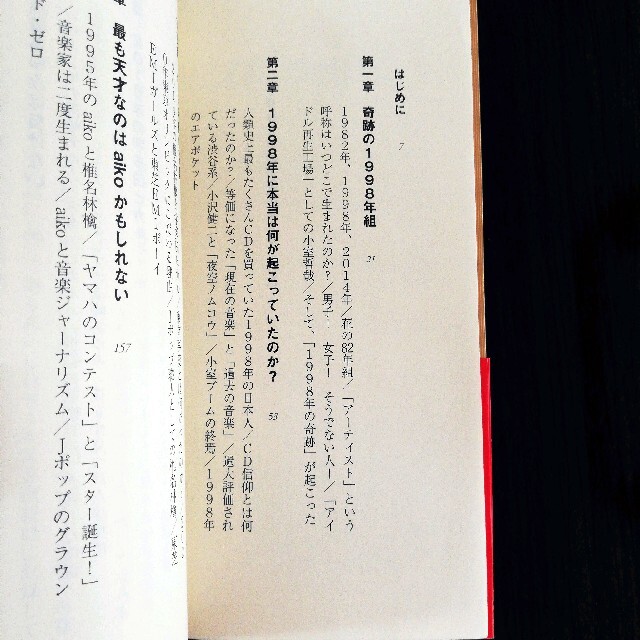 はじめに 7
第一章 奇跡の1998年組 21
1982年、1998年、2014年/花の82年組/「アーティスト」という
呼称はいつどこで生まれたのか?/男子? 女子! そうでない人!/「アイ
ドル再生工場」としての小室哲哉/そして、「1998年の奇跡」が起こった
第二章 1998年に本当は何が起こっていたのか? 53
人類史上最もたくさんCDを買っていた1998年の日本人/CD信仰とは何
だったのか?/等価になった「現在の音楽」と「過去の音楽」/過大評価され
ている渋谷系/小沢健二と「夜空ノムコウ」/小室ブームの終焉/1998年
のエアポケット
EMIガールズと東芝EMIボーイ
章 最も天才なのはaikoかもしれない 157
1995年のaikoと椎名林檎/「ヤマハのコンテスト」と「スター誕生!」
/音楽家は二度生まれる/aikoと音楽ジャーナリズム/Jポップのグラウン
ド・ゼロ